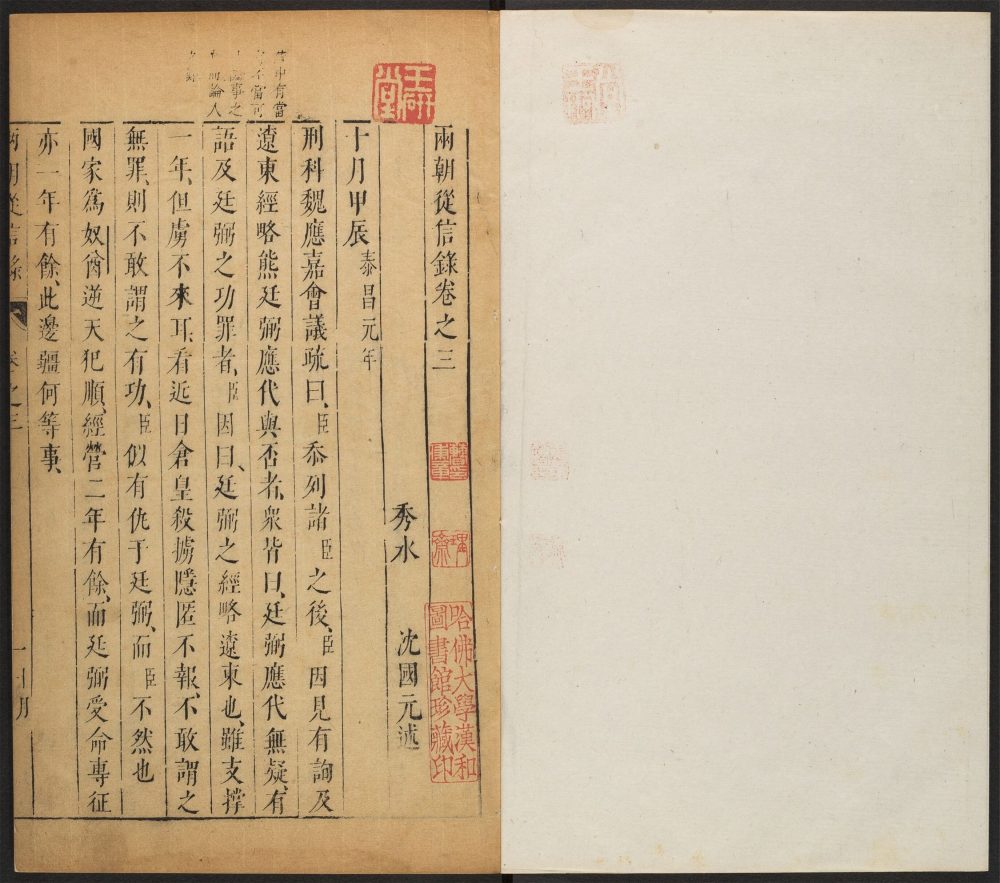 兩朝從信錄卷之三
秀水 沈國元述
十月甲辰 泰昌元年
刑科魏應嘉會議疏曰、臣忝列諸臣之後、臣因見有詢及
遼東經略熊廷弼應代與否者、衆皆曰、廷弼應代無疑、有
語及廷弼之功罪者、臣因曰、廷弼之經略遼東也、雖支撐
一年、但虜不來耳、看近日倉皇殺擄隱匿不報、不敢謂之
無罪、則不敢謂之有功、臣似有仇于廷弼、而臣不然也
國家爲奴酋逆天犯順、經營二年有餘、而廷弼受命專征
亦一年有餘、此邊疆何等事、
兩朝從信錄 卷之三 十月
中有當
不當可
事之
論人
玉研堂
哈佛大學漢和圖書館珍藏印